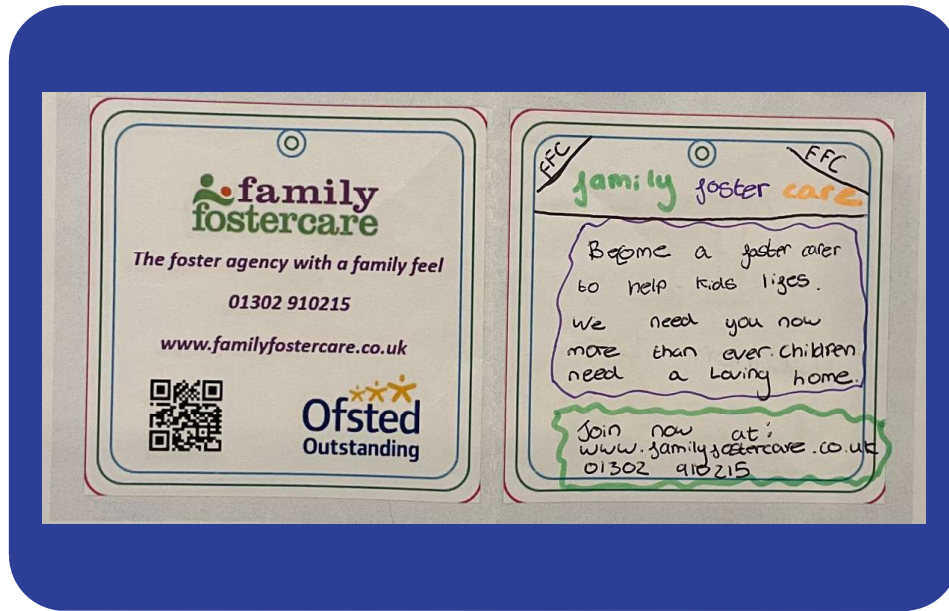 family
fostercare
The foster agency with a family feel
01302 910215
www.familyfostercare.co.uk
Ofsted
Outstanding
FFC
FFC
family foster care
Become a foster carer
to help kids lifes.
We need you now
more than ever. Children
need a Loving home.
Join now at:
www.familyfostercare.co.uk
01302 910215